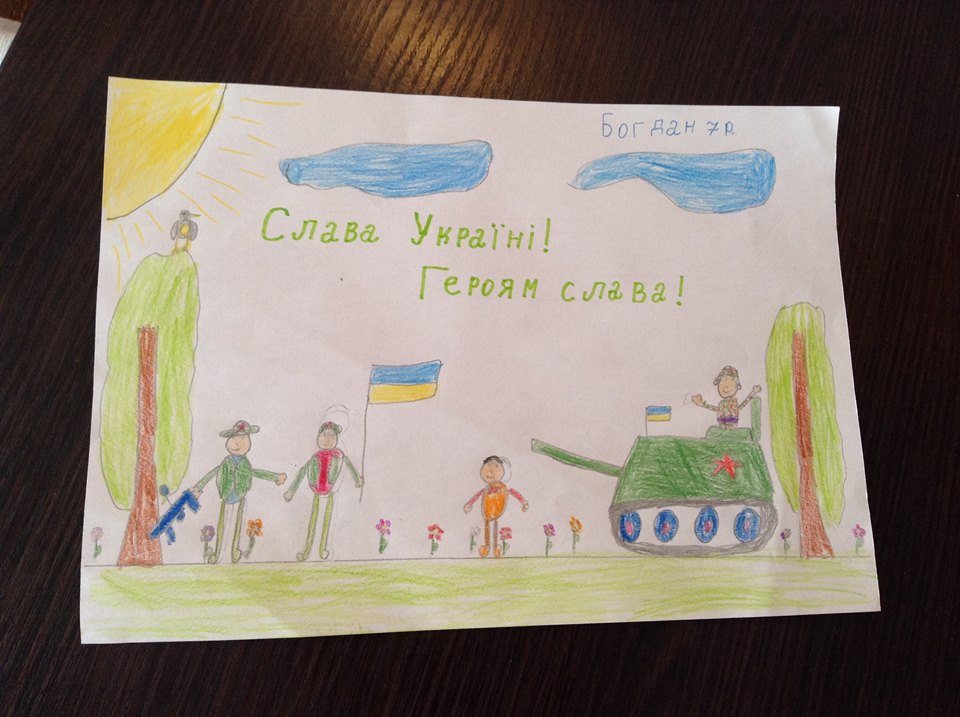 Богдан 7р.
Слава Україні!
Героям слава!